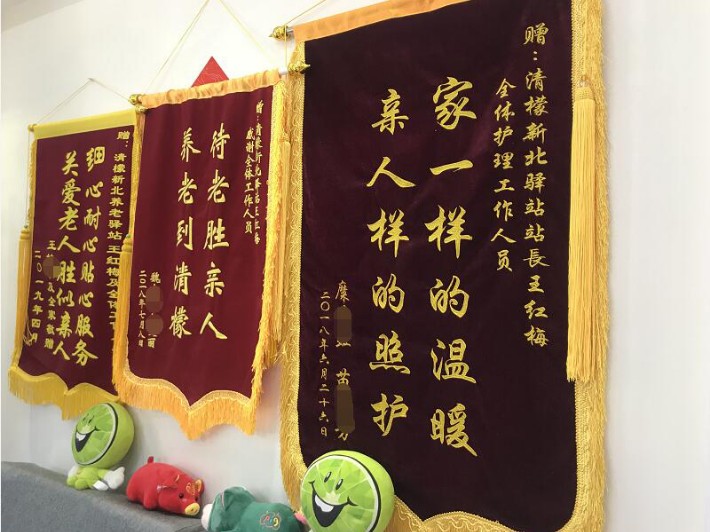 赠:清檬新北驿站站長王红梅
全体护理工作人员
家一样的温暖
亲人样的照护
糜 黄
二〇一八年六月二十六日
赠:清檬新北驿站王红梅
感谢全体工作人员
待老胜亲人
养老到清檬
魏 丽
二〇一八年七月八日
赠:清檬新北养老驿站王红梅及全体工
细心耐心贴心服务
关爱老人胜似亲人
王 及全家敬赠
二〇一九年四月